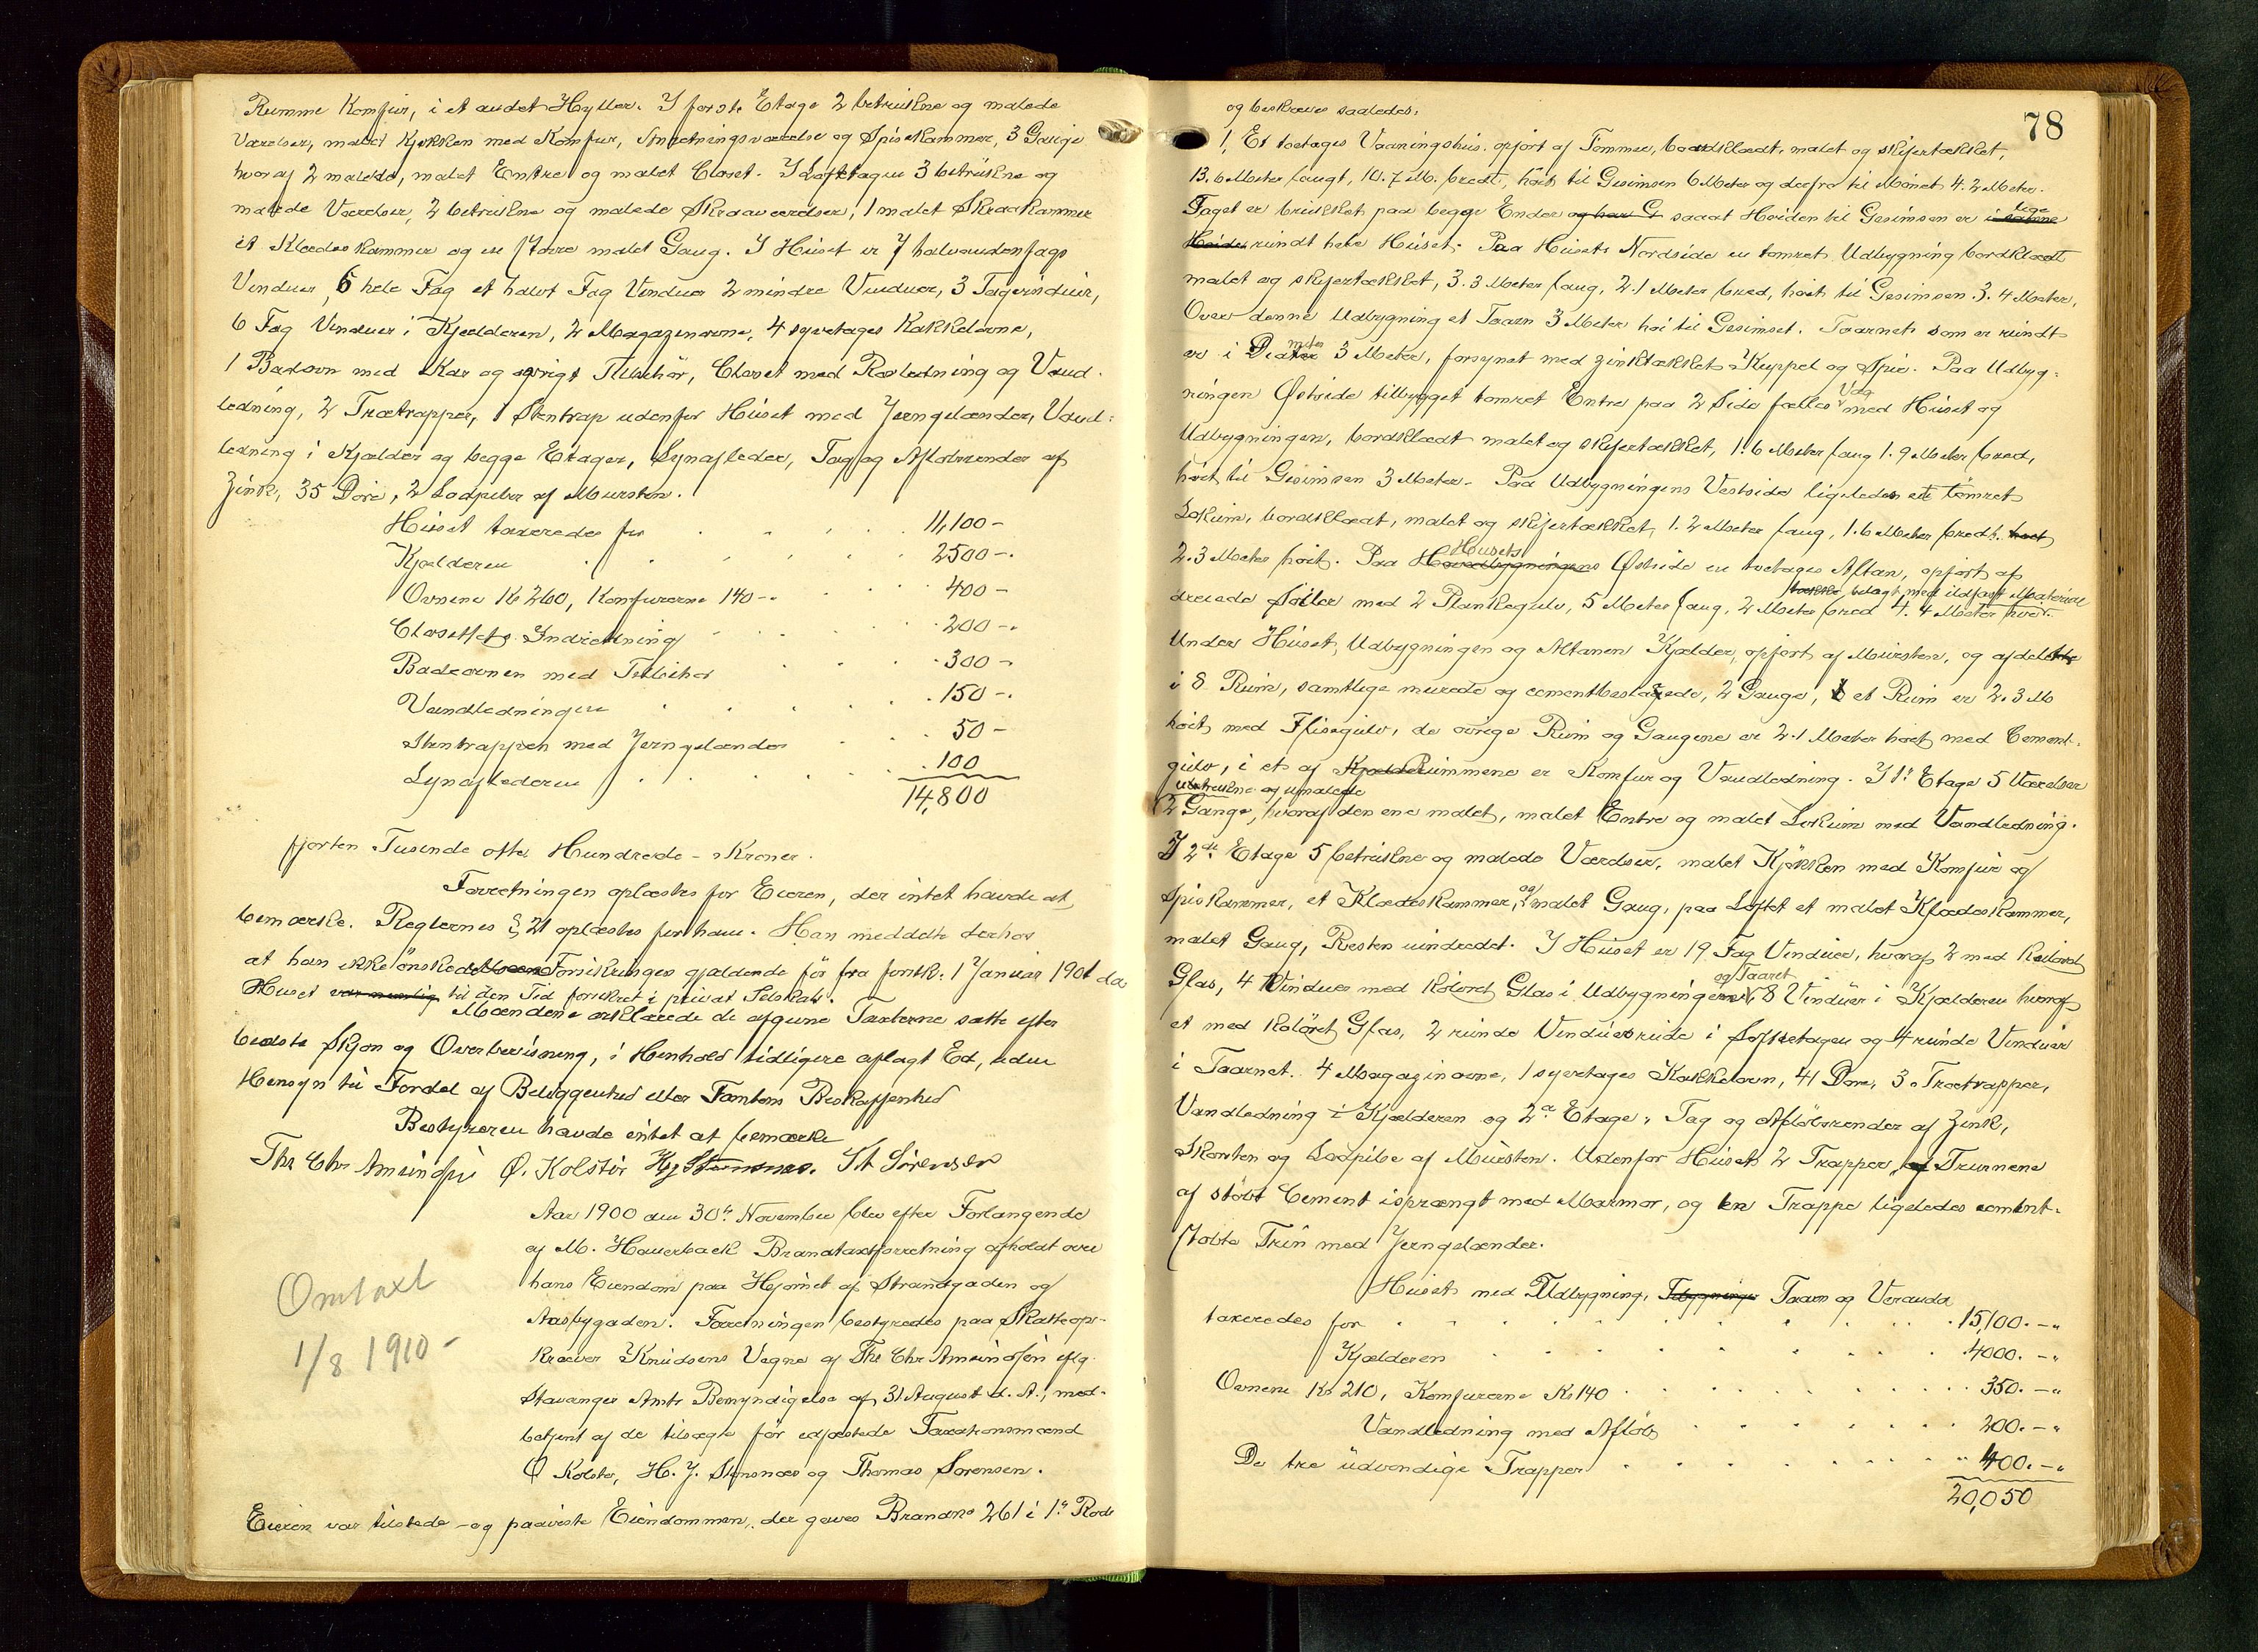 Rumme Komfur, i et andet Hyller. I første Etage 2 betrukne og malede
Værelser, malet Kjøkken med Komfur, Anretningsværelse og Spisekammer, 3 Gange
hvoraf 2 malede, malet Entre og malet Closet. I Loftetagen 3 betrukne og
malede Værelser, 2 betrukne og malede Skraaværelser, 1 malet Skraakammer
et Klædeskammer og en større malet Gang. I Huset er 7 halvandenfags
Vinduer, 6 hele Fag et halvt Fag Vinduer 2 mindre Vinduer, 3 Tagvinduer,
6 Fag Vinduer i Kjælderen, 2 Magazinovne, 4 syvetages Kakkelovne,
1 Badeovn med Kar og øvrigt Tilbehør, Closet med Rørledning og Vand-
ledning, 2 Trætrapper, 1 Stentrap udenfor Huset med Jerngelænder, Vand-
ledning i Kjælder og begge Etager, Lynafleder, Tag og Afløbsrender af
Zink, 35 Døre, 2 Lodpiber af Mursten.
Huset taxeredes for 11,100 –
Kjælderen 2500 –
Ovnene Kr 260, Komfurerne 140 – 400 –
Closettets Indretning 200 –
Badeovnen med Tilbehør 300 –
Vandledningen 150 –
Stentrappen med Jerngelænder 50 –
Lynaflederen 100
14,800
fjorten Tusinde otte Hundrede – Kroner.
Forretningen oplæstes for Eieren, der intet havde at
bemærke. Reglernes § 21 oplæstes for ham. Han meddelte derhos
at han ikke ønskede Forsikringen gjældende før fra førstk. 1 Januar 1901 da
Huset var nemlig til den Tid forsikret i privat Selskab.
Mændene erklærede de afgivne Taxterne satte efter
bedste Skjøn og Overbevisning, i Henhold tidligere aflagt Ed, uden
Hensyn til Fordel af Beliggenhed eller Tomtens Beskaffenhed
Bestyreren havde intet at bemærke
Ths Chr Amundsen Ø. Kolstø H J Stensnæs. Th Sörensen
Aar 1900 den 30te November blev efter Forlangende
af M. Hauerbach Brandtaxtforretning afholdt over
hans Eiendom paa Hjørnet af Strandgaden og
Aasbygaden. Forretningen bestyredes paa Skatteop-
kræver Knudsens Vegne af Ths Chr Amundsen iflg.
Stavanger Amts Bemyndigelse af 31 August d. A., med-
betjent af de tilsagte før edfæstede Taxationsmænd
Ø Kolstø, H. J. Stensnæs og Thomas Sørensen.
Omtaxt
1/8 1910 –
Eieren var tilstede – og paaviste Eiendommen, der gaves Brandno 261 i 1te Rode
78
og beskreves saaledes:
1, Et toetages Vaaningshus opført af Tømmer, bordklædt, malet og skifertækket,
13.6 Meter langt, 10.7 M. bredt, høit til Gesimsen 6 Meter og derfra til Mønet 4.2 Meter.
Taget er brukket paa begge Ender og har G saaat Høiden til Gesimsen er i samme lige
Høide rundt hele Huset. Paa Husets Nordside en tømret Udbygning bordklædt
malet og skifertækket, 3.3 Meter lang, 2.1 Meter bred, høit til Gesimsen 3.4 Meter,
Over denne Udbygning et Taarn 3 Meter høi til Gesimset. Taarnet som er rundt
er i Diameter 3 Meter, forsynet med zinktækket Kuppel og Spir. Paa Udbyg-
ningen Østside tilbygget tømret Entre paa 2 Sider fælles Væg med Huset og
Udbygningen, bordklædt malet og skifertækket, 1.6 Meter lang 1.9 Meter bred,
høit til Gesimsen 3 Meter. Paa Udbygningens Vestside ligeledes et tømret
Lokum, bordklædt, malet og skifertækket, 1.2 Meter lang, 1.6 Meter bredt. høit
2.3 Meter høit. Paa Hovedbygningens Husets Østside en toetages Altan, opført af
dreiede Søiler med 2 Plankegulv, 5 Meter lang, 2 Meter bred 4.4 Meter høi. tække, belagt med ildfast Materiale
Under Huset, Udbygningen og Altanen Kjælder, opført af Mursten, og afdelt
i 8 Rum, samtlige murede og cementbeslagede, 2 Gange, et Rum er 2.3 M
høit med Flisegulv, de øvrige Rum og Gangene er 2.1 Meter høit med Cement-
gulv, i et af Rummene er Komfur og Vandledning. I 1te Etage 5 Værelser
ubetrukne og umalede
2 Gange, hvoraf den ene malet, malet Entre og malet Lokum med Vandledning.
I 2de Etage 5 betrukne og malede Værelser, malet Kjøkken med Komfur og
Spiskammer, et Klædeskammer, og malet Gang, paa Loftet et malet Klædeskammer,
malet Gang, Resten uindredet. I Huset er 19 Fag Vinduer, hvoraf 2 med Kulørt
Glas, 4 Vinduer med Kolørt Glas i Udbygningerne og Taarnet, 8 Vinduer i Kjælderen hvoraf
et med kolørt Glas, 2 runde Vinduer i Loftsetagen og 4 runde Vinduer
i Taarnet. 4 Magazinovne, 1 syvetages Kakkelovn, 41 Døre, 3 Trætrapper,
Vandledning i Kjælderen og 2den Etage, Tag og Afløbsrender af Zink,
Skorsten og Lodpibe af Mursten. Udenfor Huset 2 Trapper, af Trinnene
af støbt Cement isprængt med Marmor, og en Trappe ligeledes cement-
støbte Trin med Jerngelænder.
Huset med Udbygning, Tilbygninger Taarn og Veranda
taxeredes for 15,100. – „
Kjælderen 4000. – „
Ovnene Kr 210, Komfurerne Kr 140 350. – „
Vandledning med Afløb 200. – „
De tre udvendige Trapper 400. – „
20,050